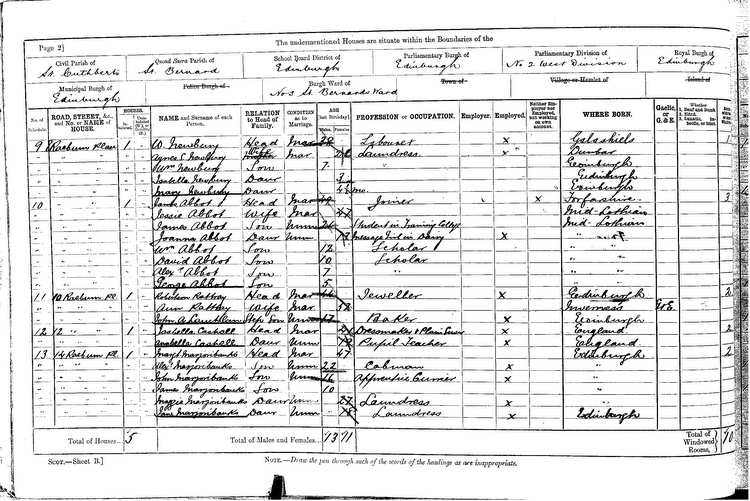 The undermentioned Houses are situate within the Boundaries of the
Page 2]
Civil Parish of Quoad Sacra Parish of School Board District of Parliamentary Burgh of Parliamentary Division of Royal Burgh of
St. Cuthberts St. Bernard Edinburgh Edinburgh No 2 West Division Edinburgh
Municipal Burgh of Police Burgh of Burgh Ward of Town of Village or Hamlet of Island of
Edinburgh No 3 St. Bernards Ward
No. of Schedule ROAD, STREET, &c., and No. or NAME of HOUSE. HOUSES. NAME and Surname of each Person. RELATION to Head of Family. CONDITION as to Marriage. AGE [last Birthday] Males Females PROFESSION or OCCUPATION. Employer. Employed. Neither Employer nor Employed, but working on own account. WHERE BORN. Gaelic, or G. & E.
9 Raeburn Place 1 W. Newbury Head Mar Labourer x Galashiels
Agnes Newbury Wife Mar Laundress x Dunbar
Wm Newbury Son 7 Edinburgh
Isabella Newbury Daur 3 Edinburgh
Mary Newbury Daur Edinburgh
10 1 James Abbot Head Mar Joiner x Forfarshire 3
Jessie Abbot Wife Mar 47 Mid-Lothian
James Abbot Son Unm Student in Training College Mid-Lothian
Joanna Abbot Daur Unm 17 Message Girl in Dairy x
Wm Abbot Son 12 Scholar
David Abbot Son 10 Scholar
Alexr Abbot Son 7 "
George Abbot Son 5
11 10 Raeburn Pl. 1 Robertson Rattray Head Mar Jeweller x Edinburgh 2
Ann Rattray Wife Mar Inverness G.E.
Step Son Unm 17 Baker x Edinburgh
12 12 " " 1 Isabella Cashell Head Mar Dressmaker & Plain Sewer x England 2
Annabella Cashell Daur Unm Pupil Teacher x England
13 14 Raeburn Pl. 1 Margt Marjoribanks Head Mar 47 Edinburgh 2
Alexr Marjoribanks Son Unm 22 Cabman x "
John Marjoribanks Son Unm 16 Apprentice Currier x "
James Marjoribanks Son 10 "
Maggie Marjoribanks Daur Unm Laundress x "
Jane Marjoribanks Daur Unm Laundress x Edinburgh
Total of Houses.. 5 Total of Males and Females.. 13 11 Total of Windowed Rooms, 10
SCOT.—Sheet B.] NOTE.—Draw the pen through such of the words of the headings as are inappropriate.